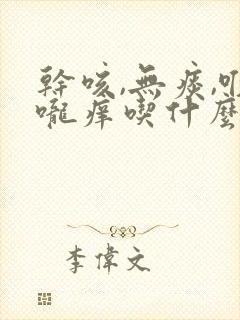 幹咳,無痰,喉
嚨癢喫什麼
李偉文